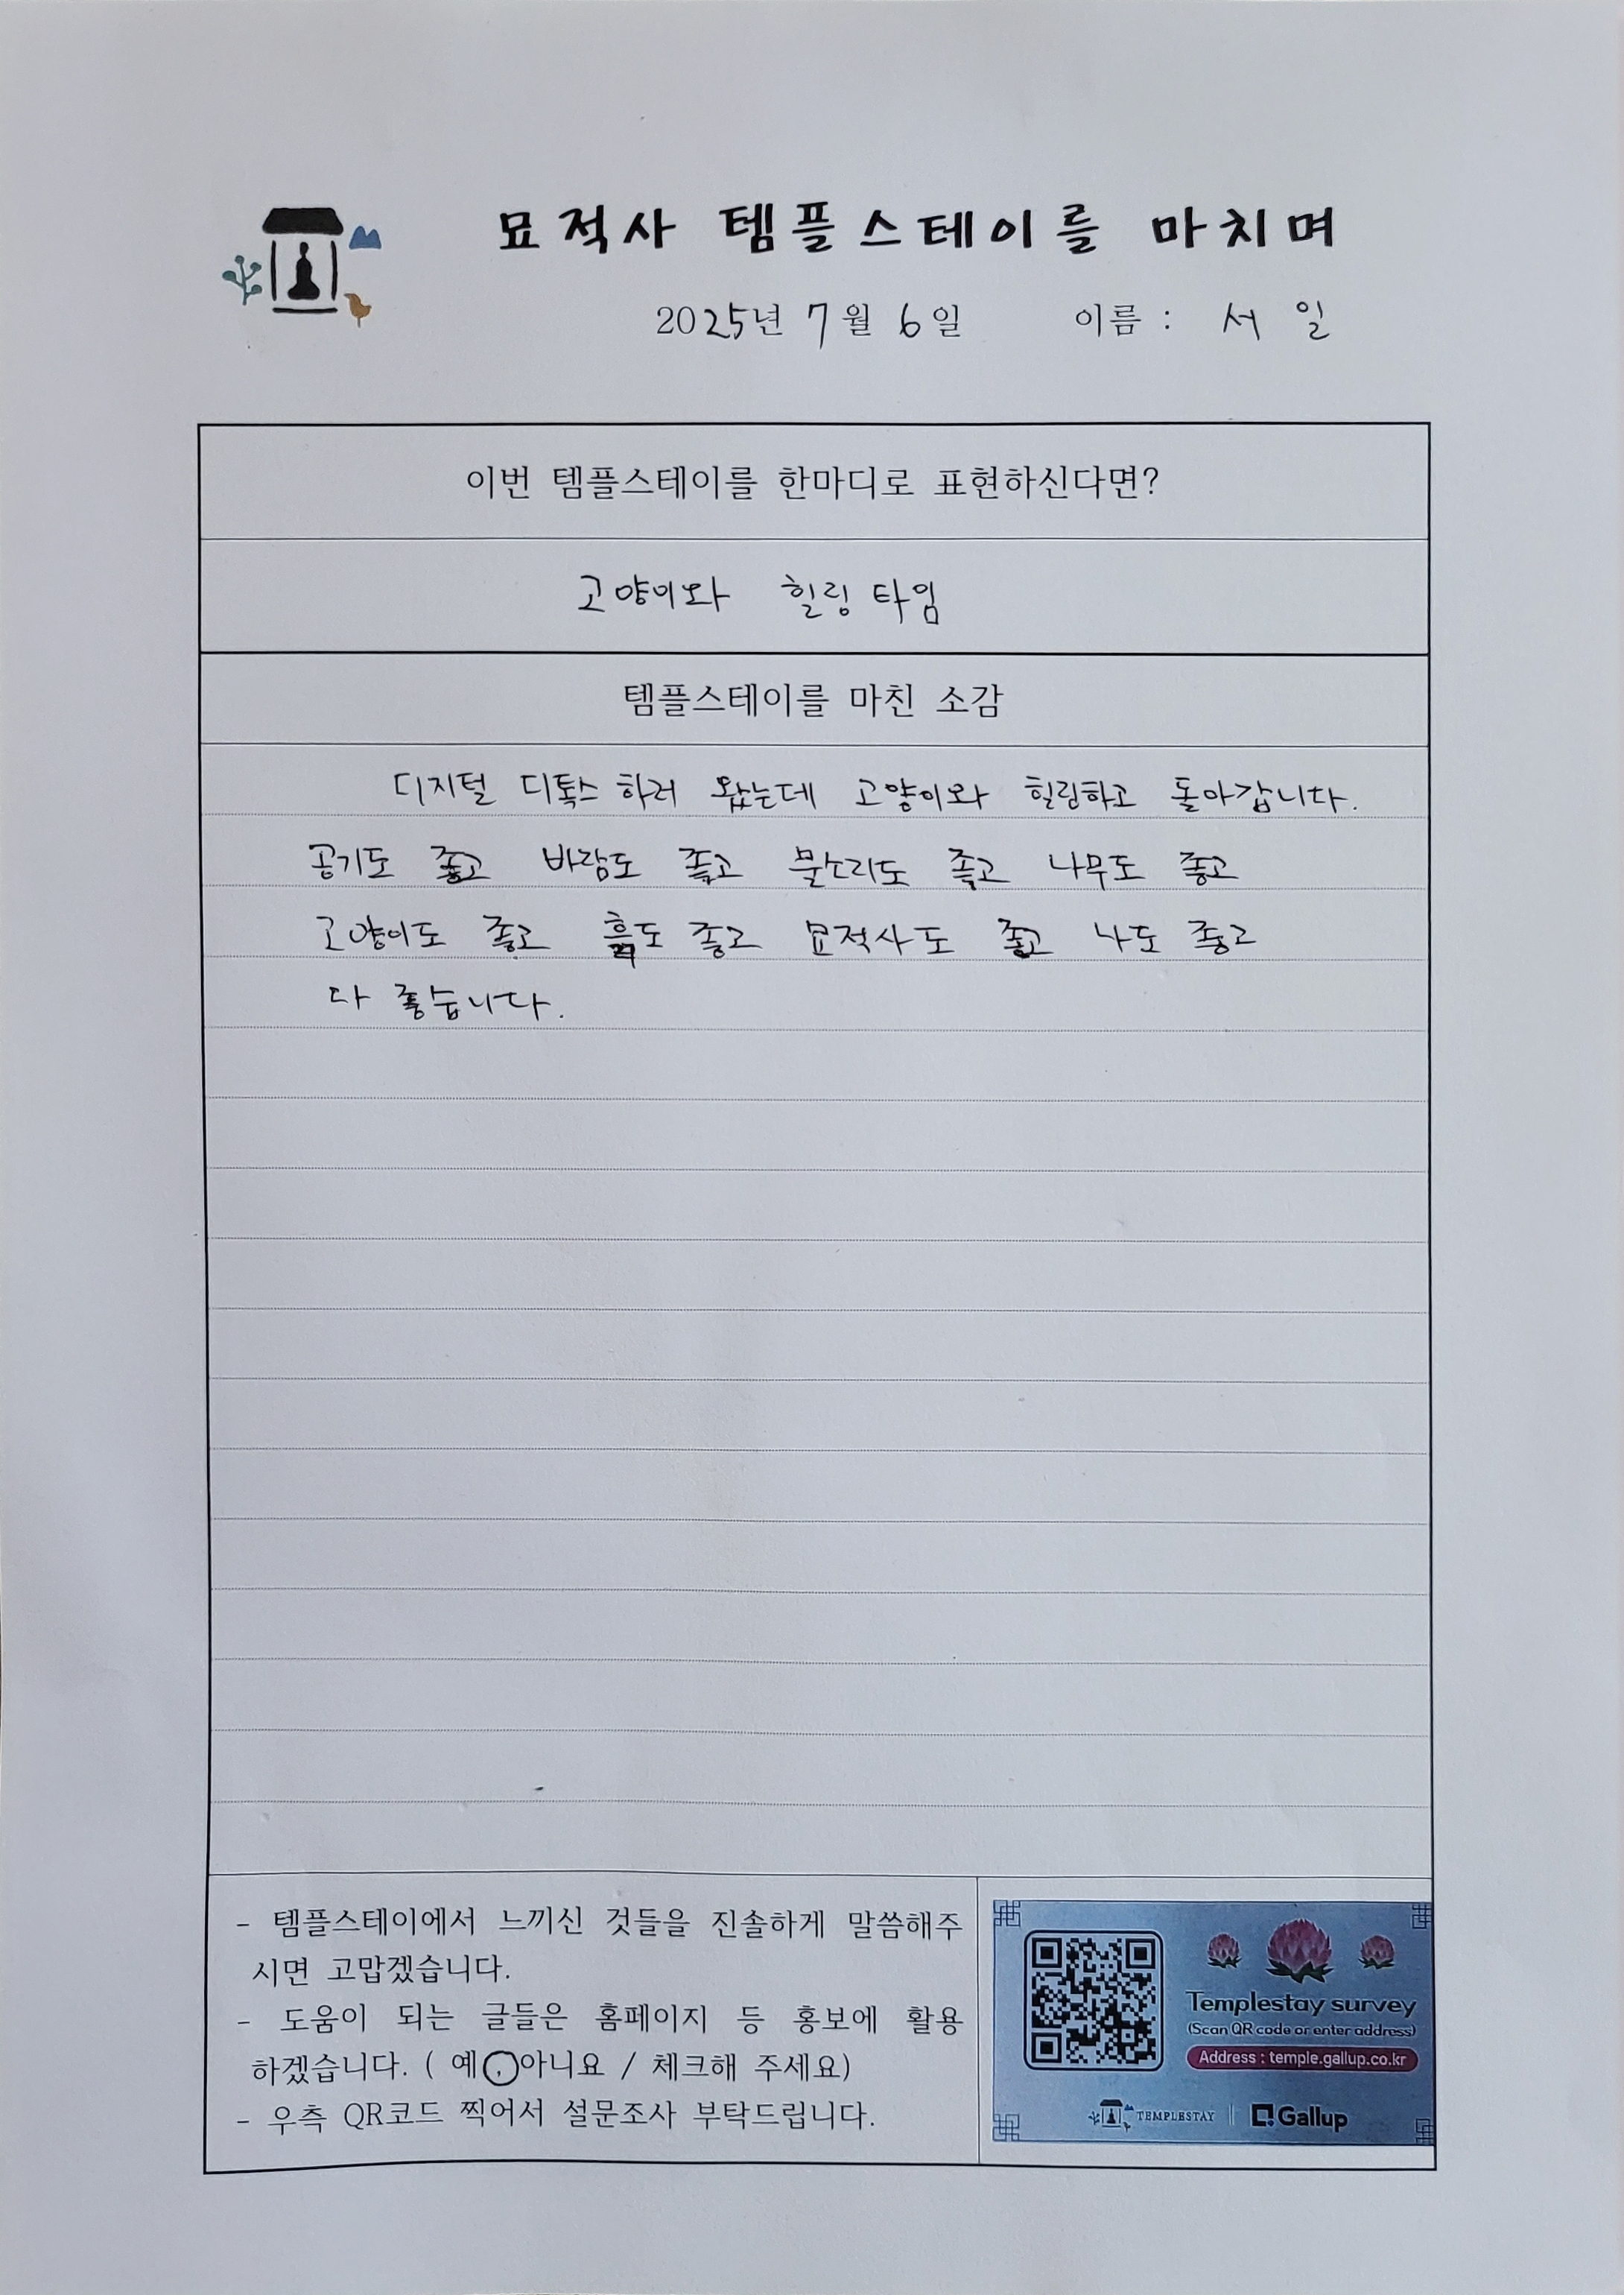 묘적사 템플스테이를 마치며
2025년 7월 6일 이름 : 서 일
이번 템플스테이를 한마디로 표현하신다면?
고양이와 힐링 타임
템플스테이를 마친 소감
디지털 디톡스 하러 왔는데 고양이와 힐링하고 돌아갑니다.
공기도 좋고 바람도 좋고 물소리도 좋고 나무도 좋고
고양이도 좋고 흙도 좋고 묘적사도 좋고 나도 좋고
다 좋습니다.
- 템플스테이에서 느끼신 것들을 진솔하게 말씀해주
시면 고맙겠습니다.
- 도움이 되는 글들은 홈페이지 등 홍보에 활용
하겠습니다. ( 예 , 아니요 / 체크해 주세요)
- 우측 QR코드 찍어서 설문조사 부탁드립니다.
Templestay survey
(Scan QR code or enter address)
Address : temple.gallup.co.kr
TEMPLESTAY Gallup